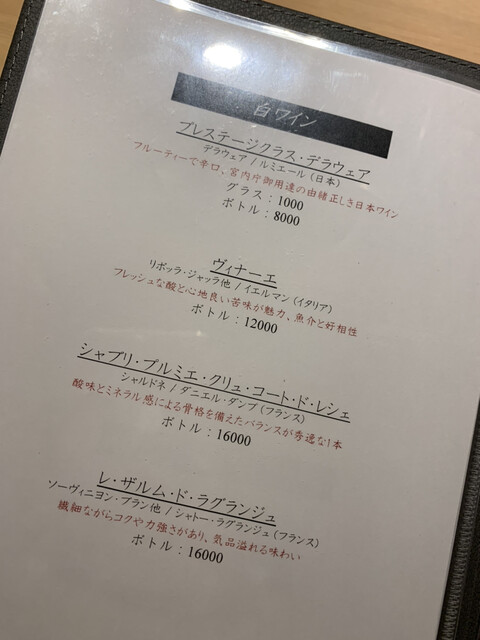 白ワイン
プレステージクラス・デラウェア
デラウェア / ルミエール (日本)
フルーティーで辛口、宮内庁御用達の由緒正しき日本ワイン
グラス : 1000
ボトル : 8000
ヴィナーエ
リボッラ・ジャッラ他 / イエルマン (イタリア)
フレッシュな酸と心地良い苦味が魅力、魚介と好相性
ボトル : 12000
シャブリ・プルミエ・クリュ・コート・ド・レシェ
シャルドネ / ダニエル・ダンプ (フランス)
酸味とミネラル感による骨格を備えたバランスが秀逸な1本
ボトル : 16000
レ・ザルム・ド・ラグランジュ
ソーヴィニヨン・ブラン他 / シャトー・ラグランジュ (フランス)
繊細ながらコクや力強さがあり、気品溢れる味わい
ボトル : 16000